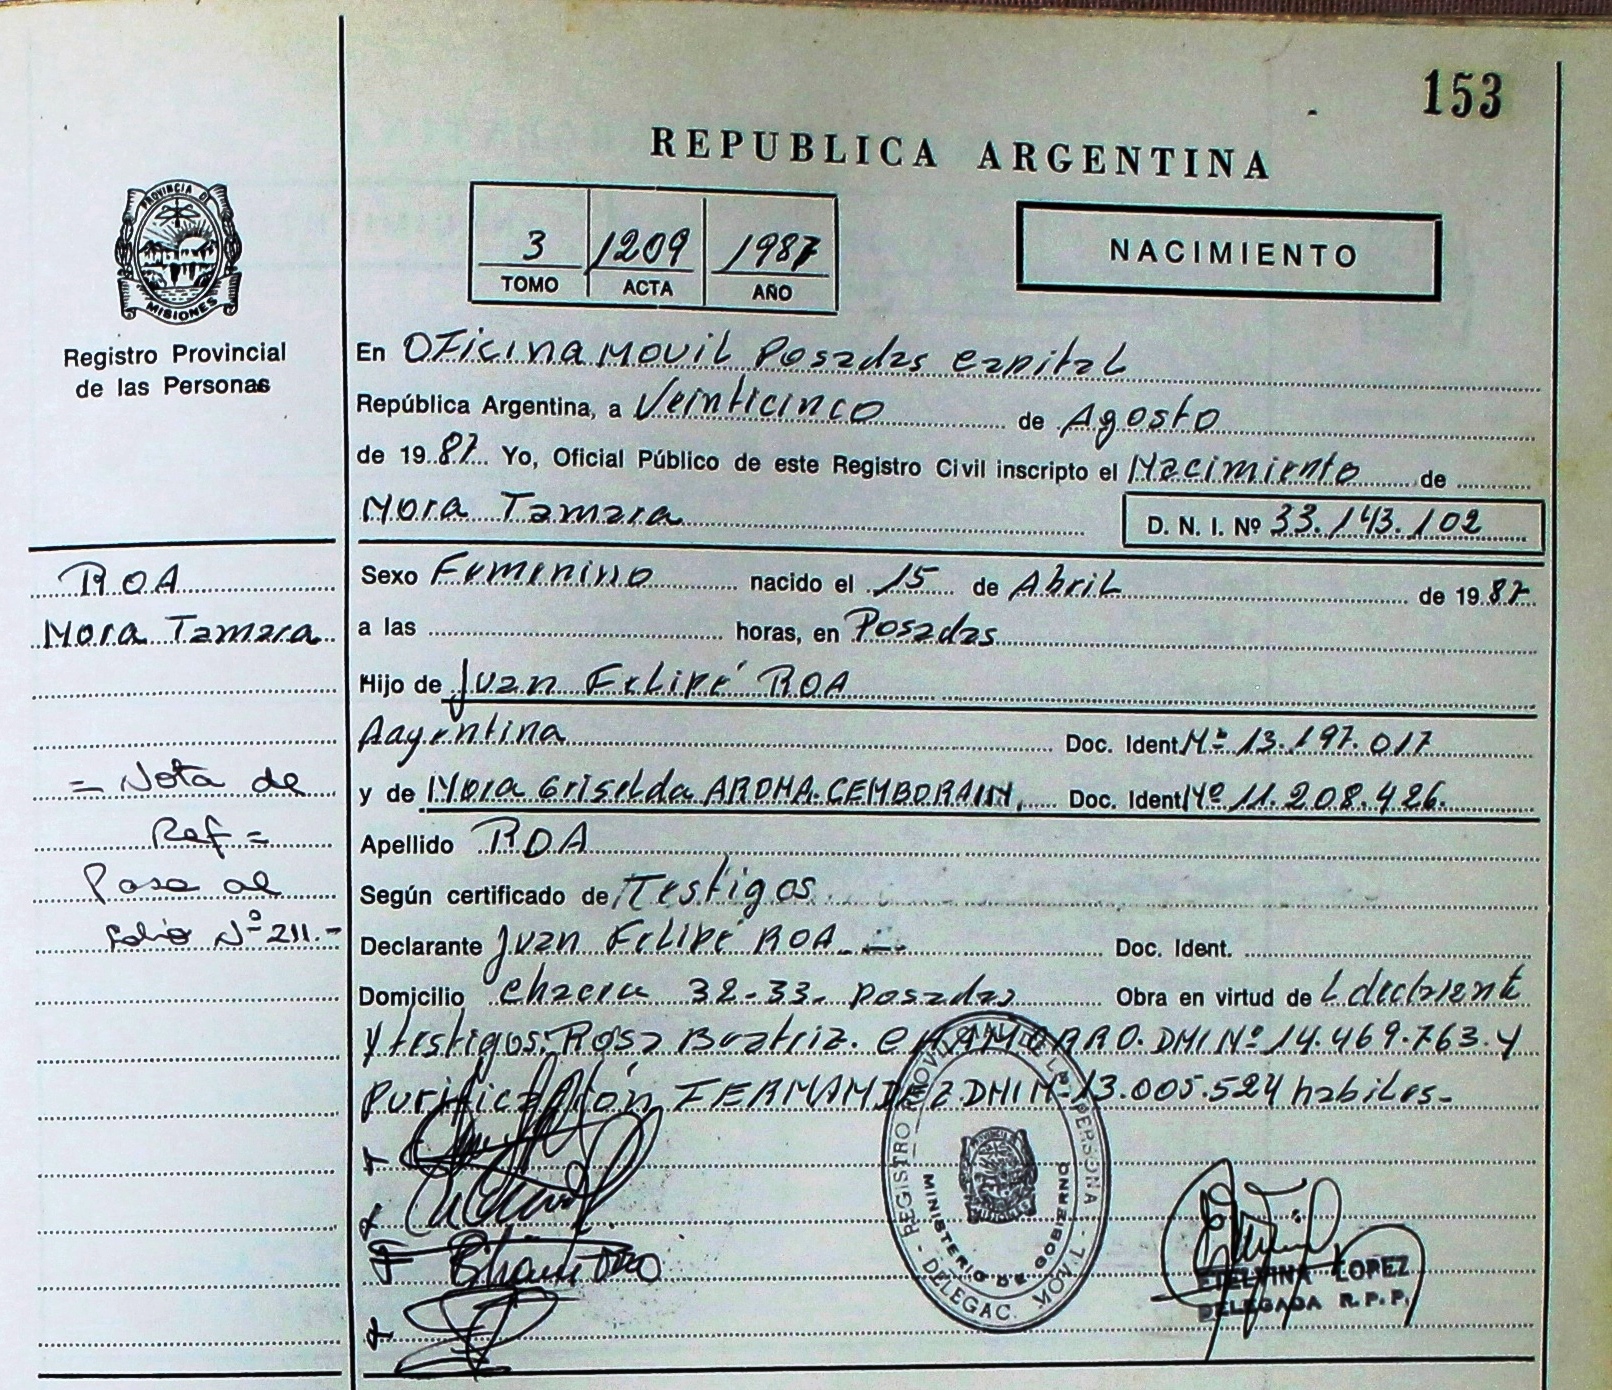 153
REPUBLICA ARGENTINA
3 1209 1987
TOMO ACTA AÑO
NACIMIENTO
PROVINCIA DE
MISIONES
Registro Provincial
de las Personas
En Oficina Movil Posadas Capital
República Argentina, a Veinticinco de Agosto
de 1987 Yo, Oficial Público de este Registro Civil inscripto el Nacimiento de
Nora Tamara D. N. I. Nº 33.143.102
ROA
Nora Tamara
= Nota de
Ref =
Pasa al
folio Nº 211.-
Sexo Femenino nacido el 15 de Abril de 1987
a las horas, en Posadas
Hijo de Juan Felipé ROA
Argentina Doc. Ident Nº 13.197.017
y de Nora Griselda AROMA CEMBORAIN, Doc. Ident Nº 11.208.426.
Apellido ROA
Según certificado de Testigos
Declarante Juan Felipé ROA Doc. Ident.
Domicilio Chacra 32-33- posadas Obra en virtud de L declarante
y testigos: Rosa Beatriz CHAMORRO. DNI Nº 14.469.763 y
Purificación FERNANDEZ DNI Nº 13.005.524 habiles-
REGISTRO PROVINCIAL DE LAS PERSONA
MINISTERIO DE GOBIERNO
- DELEGAC. MOVIL -
ETELVINA LOPEZ
DELEGADA R.P.P.